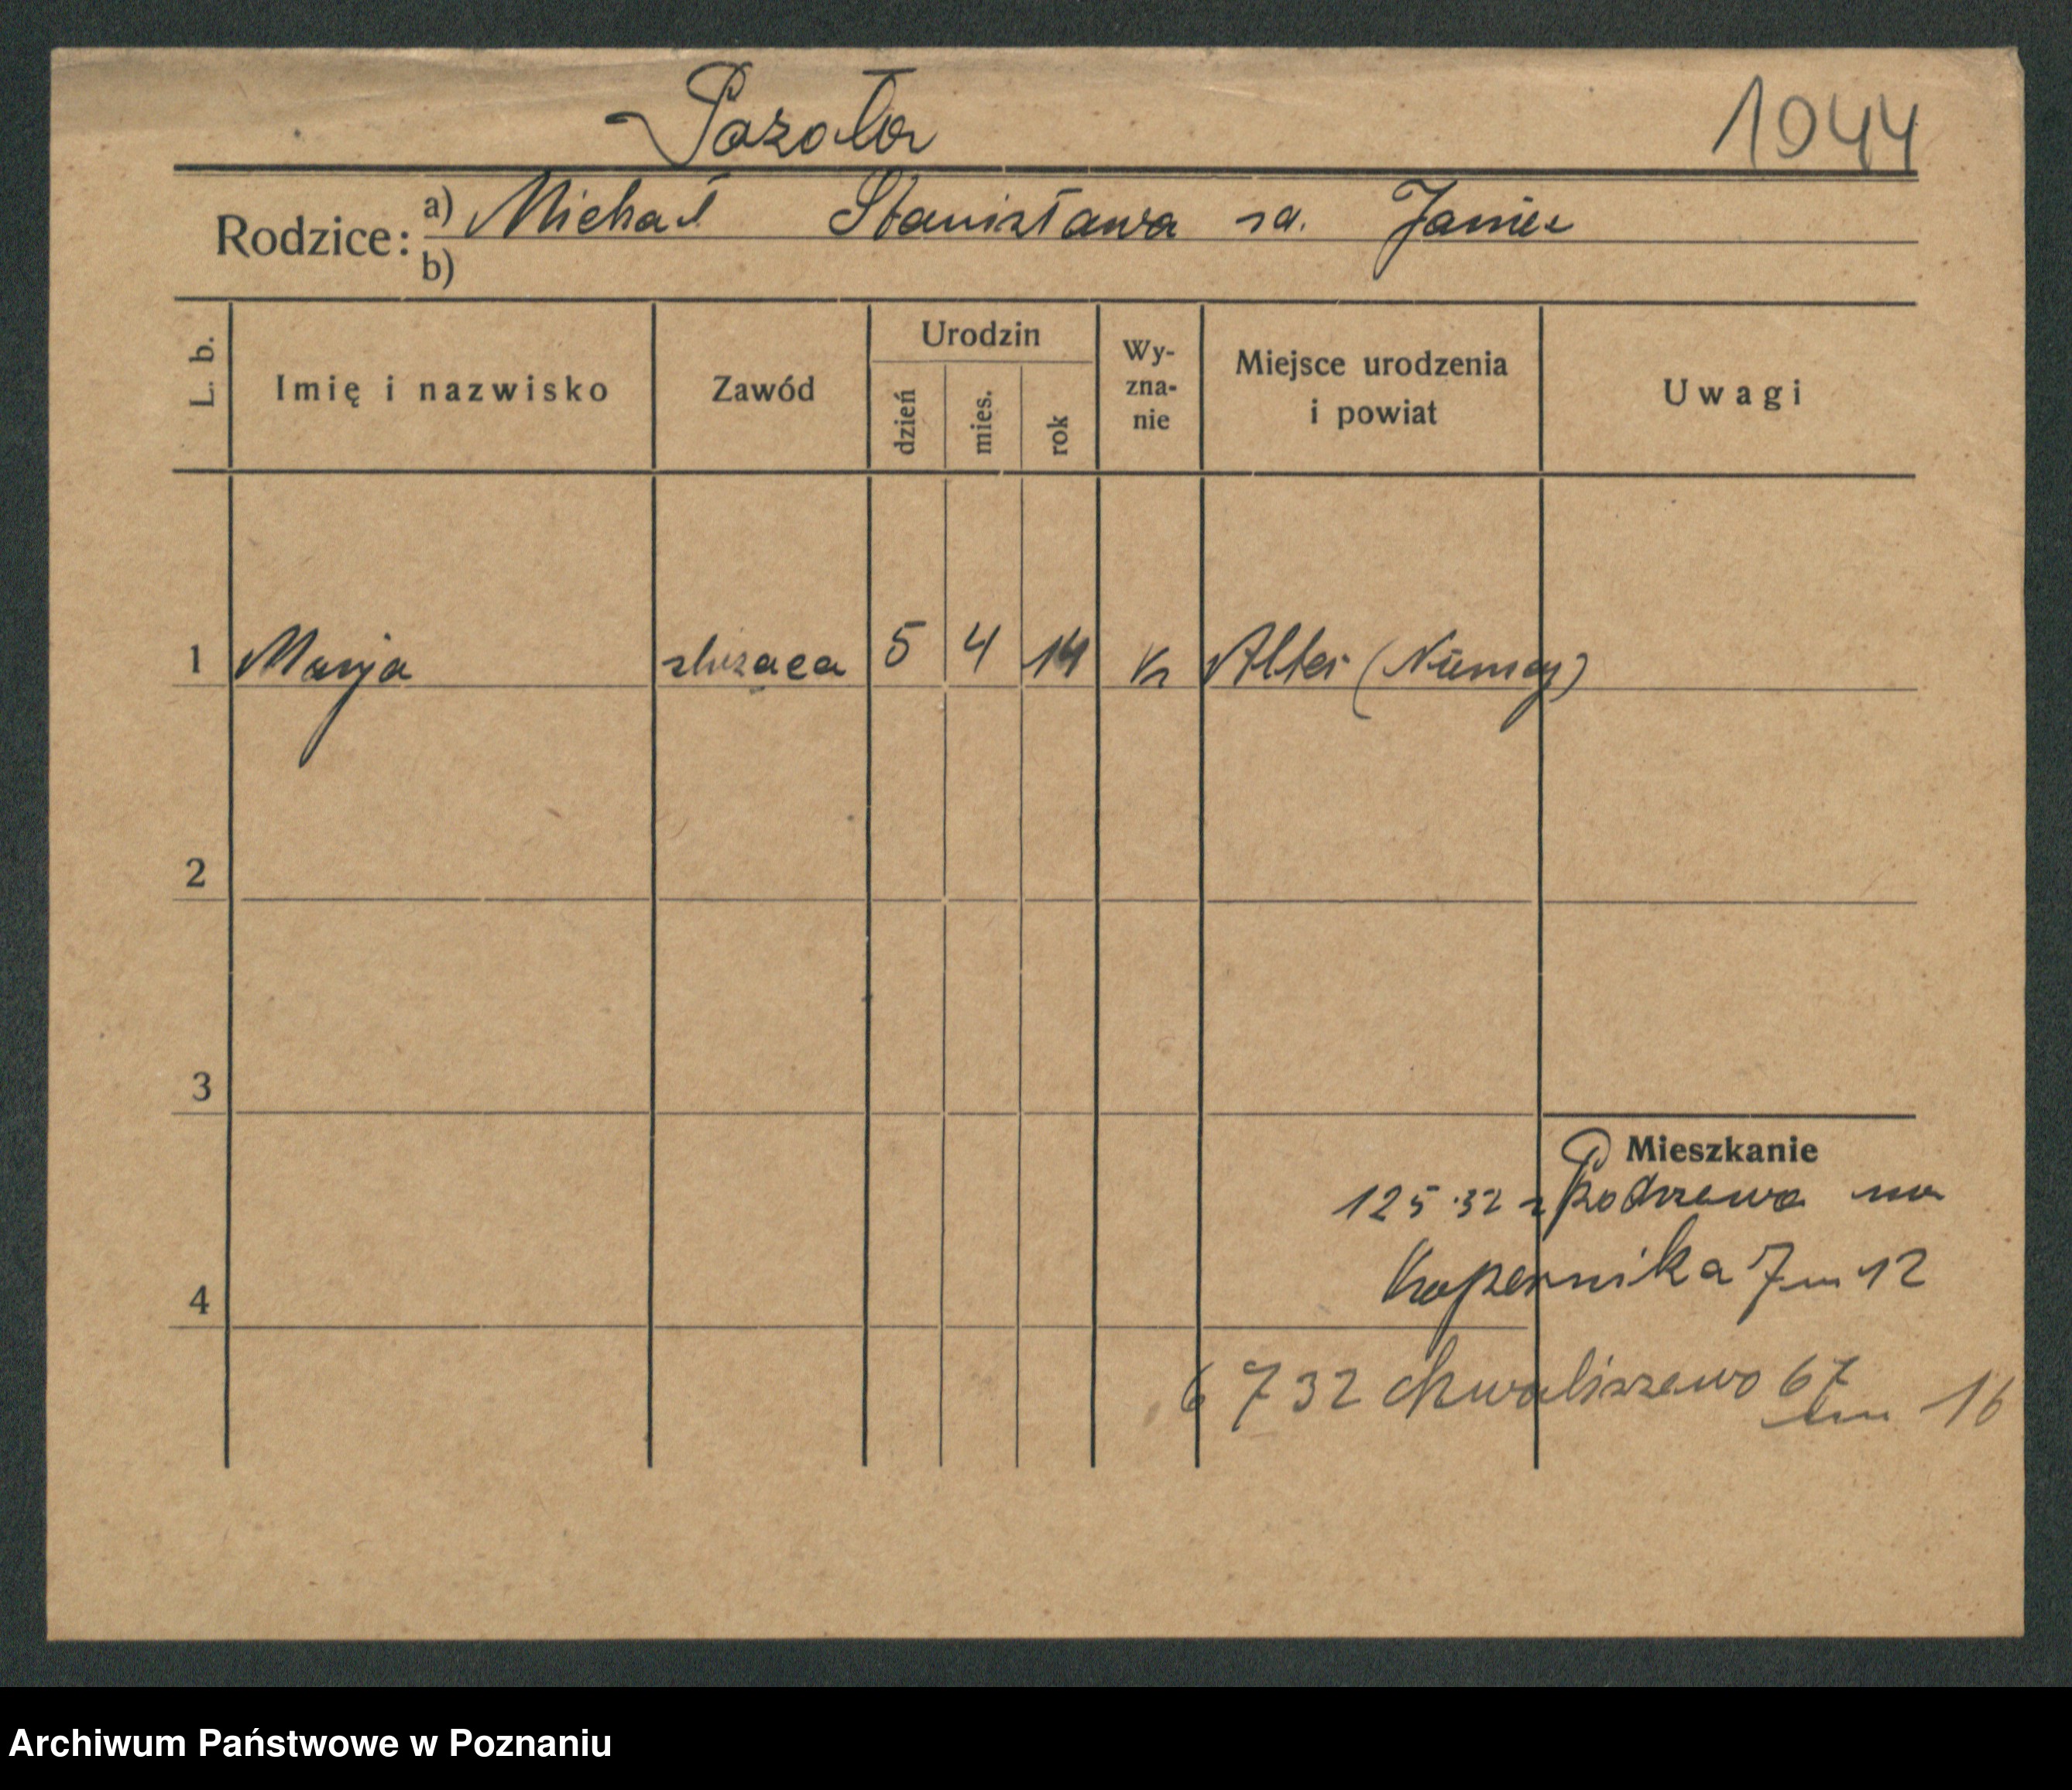 Pazoła 1944
Rodzice: a) Michał Stanisława za. Janiec
b)
L. b. Imię i nazwisko Zawód Urodzin dzień mies. rok Wyznanie Miejsce urodzenia i powiat Uwagi
1 Marja służaca 5 4 14 K Alter (Niemcy)
2
3
Mieszkanie
12 5 32 z Podrzewa na
4 Kopernika 7 m 12
6 7 32 Chwaliszewo 67
m 16
Archiwum Państwowe w Poznaniu